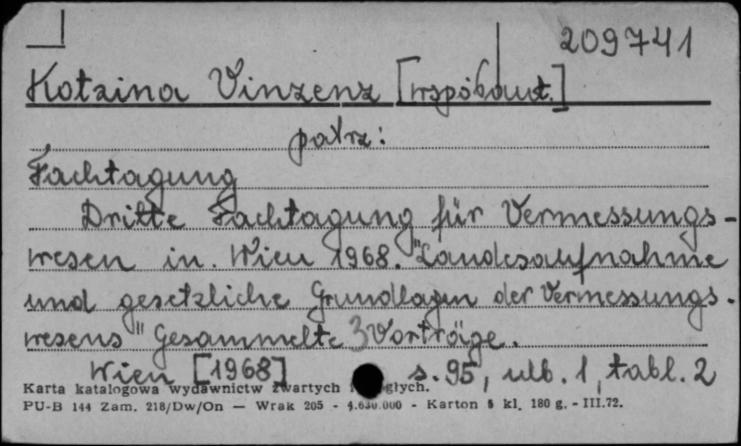 209741
Kotzina Vinzenz [współaut.]
patrz:
Fachtagung
Dritte Fachtagung für Vermessungs-
wesen in. Wien 1968. "Landesaufnahme
und gesetzliche Grundlagen der Vermessungs-
wesens" Gesammelte 3 Vorträge.
Wien [1968] s. 95, ulb. 1, tabl. 2
Karta katalogowa wydawnictw zwartych
PU-B 144 Zam. 218/Dw/On — Wrak 205 - 4.630.000 - Karton 5 kl. 180 g. - III.72.